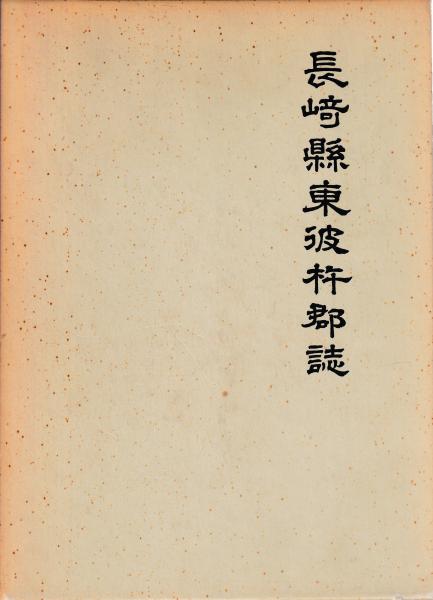 長崎縣東彼杵郡誌